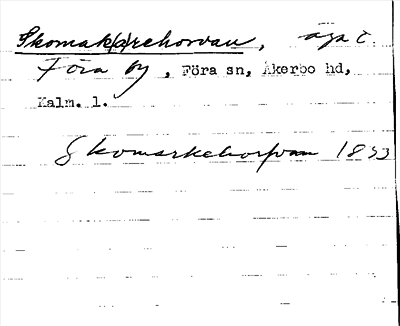 Skomak(a)rehorvan, äga i
Föra by, Föra sn, Åkerbo hd,
Kalm. l.
Skomarkehorfvan 1853